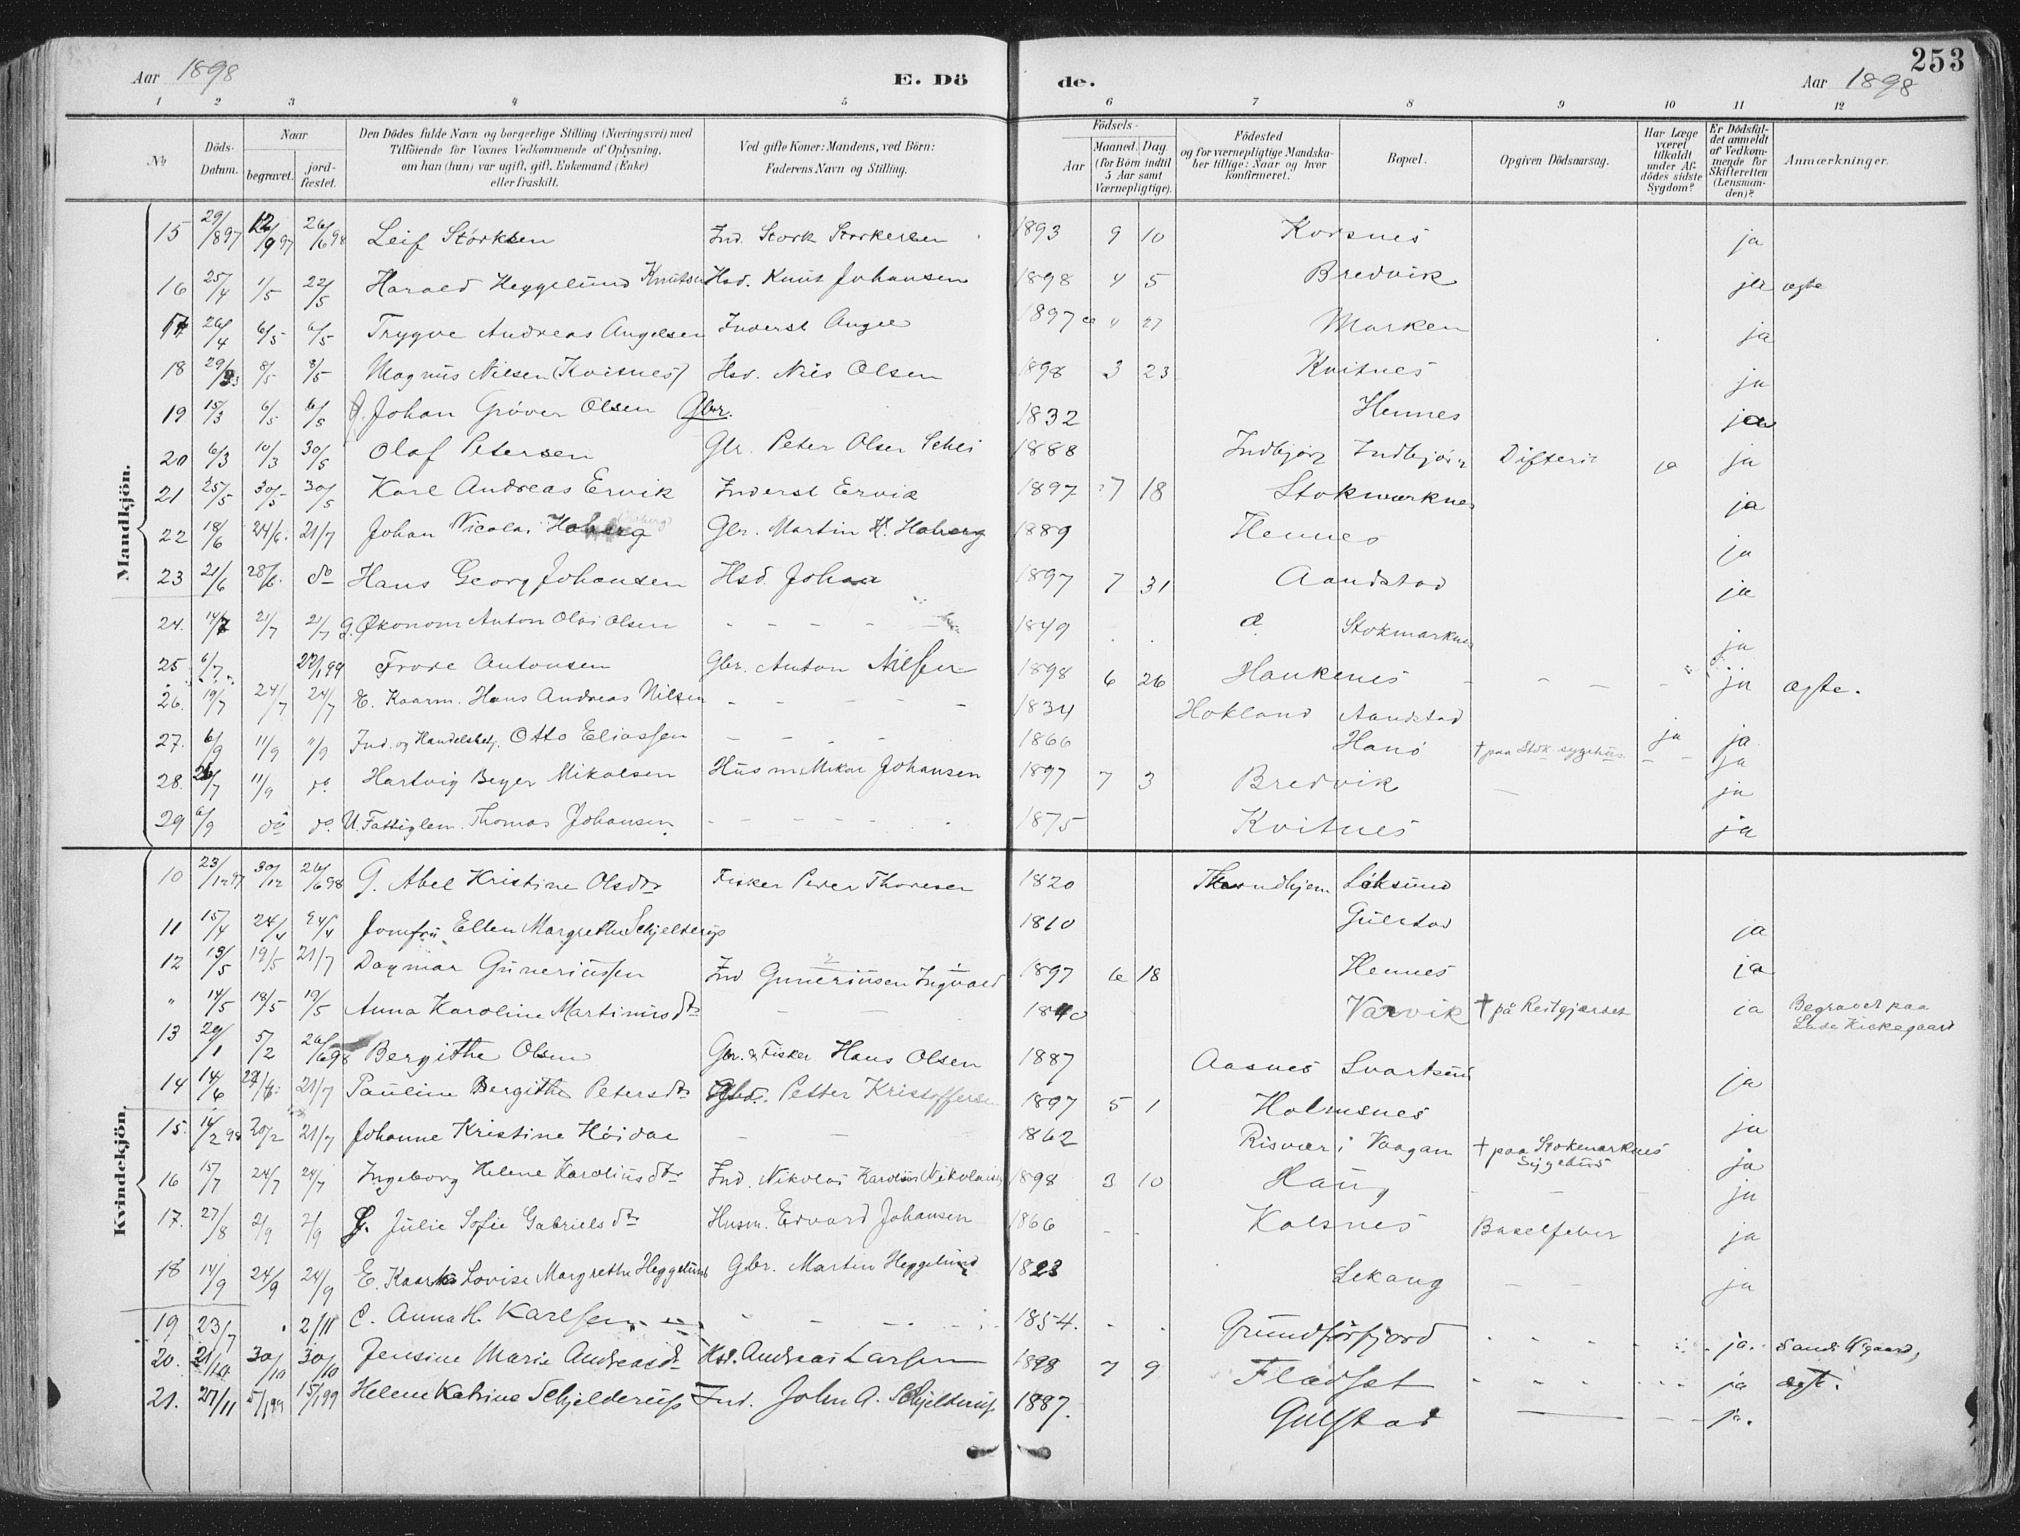 253
Aar 1898 E. Dö de. Aar 1898
1 2 3 4 5 6 7 8 9 10 11 12
No
Döds-Datum.
Naar begravet. jordfæstet.
Den Dödes fulde Navn og borgerlige Stilling (Næringsvei) med Tilföiende for Voxnes Vedkommende af Oplysning, om han (hun) var ugift, gift, Enkemand (Enke) eller fraskilt.
Ved gifte Koner: Mandens, ved Börn: Faderens Navn og Stilling.
Födsels- Aar Maaned. Dag (for Börn indtil 5 Aar samt Værnepligtige).
Födested og for værnepligtige Mandskaber tillige: Naar og hvor konfirmeret.
Bopæl.
Opgiven Dödsaarsag.
Har Læge været tilkaldt under Afdödes sidste Sygdom?
Er Dödsfaldet anmeldt af Vedkommende for Skifteretten (Lensmanden)?
Anmærkninger.
Mandkjön.
15 29/8 97 12/9 97 26/6 98 Leif Storksen Ind. Stork Storkersen 1893 9 10 Korsnes ja
16 25/4 1/5 22/5 Harald Heggelund Knutsen Hsd. Knut Johansen 1898 4 5 Bredvik ja ægte
17 26/4 6/5 6/5 Trygve Andreas Angelsen Inderst Angel 1897 27 Marken ja
18 29/3 8/5 8/5 Magnus Nilsen (Kvitnes) Hsd. Nils Olsen 1898 3 23 Kvitnes ja
19 15/3 6/5 6/5 G. Johan Gröver Olsen Gbr. 1832 Hennes ja
20 6/3 10/3 30/5 Olaf Petersen Gbr. Peter Olsen 1888 Indbjörg Indbjörg Difteri ja
21 25/5 30/5 30/5 Karl Andreas Ervik Inderst Ervik 1897 7 18 Stokmarknes ja
22 18/6 24/6 21/7 Johan Nicolai Hoberg Gbr. Martin H. Hoberg 1889 Hennes ja
23 21/6 28/6 do Hans Georg Johansen Hsd. Johan 1897 7 31 Aandstad ja
24. 14/7 21/7 21/7 G. Økonom Anton Olai Olsen - - - - 1849 Stokmarknes ja
25. 6/7 22/1 99 Frode Antonsen Gbr. Anton Nilsen 1898 6 26 Haukenes - - - - ja ægte.
26. 19/7 24/7 24/7 E. Kaarm. Hans Andreas Nilsen - - - - 1834 Hokland Aandstad ja
27. 6/9 11/9 11/9 Ind. og Handelsbetj. Otto Eliassen - - - - 1866 Hanö † paa Stok. sygehus ja ja
28. 26/7 11/9 do Hartvig Beyer Mikalsen Husm. Mikal Johansen 1897 7 3 Bredvik — ja
29 6/9 do do. U. Fattiglem. Thomas Johansen - - - - 1875 Kvitnes ja
Kvindekjön.
10 23/12 97 30/12 26/6 98 G. Abel Kristine Olsdtr Fisker Peder Thoresen 1820 Throndhjem Löksund
11 15/4 24/4 24/4 Jomfru Ellen Margrethe Schjelderup 1810 Gulstad ja
12 13/5 19/5 21/7 Dagmar Guneriussen Ind Guneriusen Ingvald 1897 6 18 Hennes ja
" 14/5 18/5 19/5 Anna Karoline Martinusdtr - - 1840 Varvik † på Reitgjerdet ja Begravet paa Lade Kirkegaard
13 29/1 5/2 26/6 98 Bergithe Olsen Gbr. & Fisker Hans Olsen 1887 Aasnes Svartsund
14 14/6 21/7 Pauline Bergithe Petersdtr Petter Kristoffersen 1897 5 1 Holmsnes ja
15. 14/2 98 20/2 21/7 Johanne Kristine Höidal - - 1862 Risvær i Vaagan † paa Stokmarknes Sygehus ja
16 15/7 24/7 24/7 Ingeborg Helene Karoliusdtr Ind. Nikolai Karolius Nikolaisen 1898 3 10 Haug - - - ja
17. 27/8 2/9 2/9 G. Julie Sofie Gabrielsdtr Husm. Edvard Johansen 1866 Kalsnes Barselfeber ja
18 14/9 24/9 24/9 E. Lovise Margrethe Heggelund Gbr. Martin Heggelund 1823 Lekang - - ja
19 23/7 2/11 Anna H. Karlsen - - - - 1854. Grundforfjord ja. Sands K'gaard,
20. 21/10 30/10 30/10 Jensine Marie Andreasdt Hsd. Andreas Larsen 1898 7 9 Fladset ja ægte.
21. 27/11 5/1 99 15/1 99 Helene Katrine Schjelderup Ind. John A. Schjelderup 1887. Gulstad — ja.